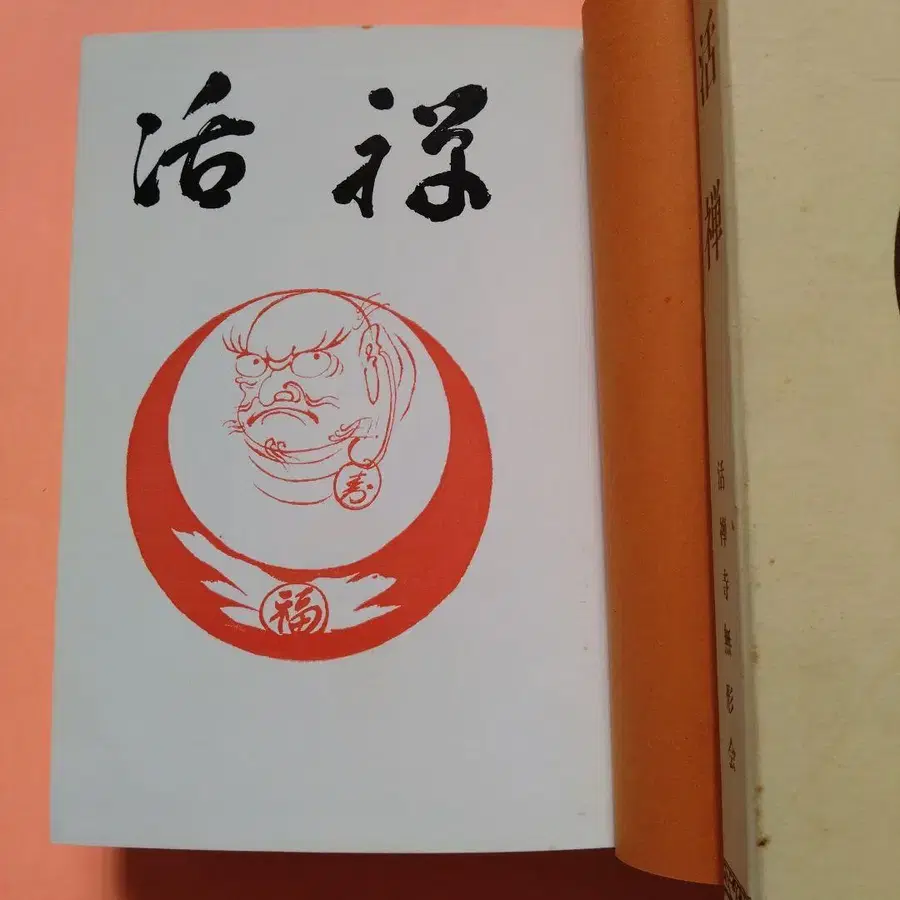 活禅
寿
福
活禅
活禅寺無形会